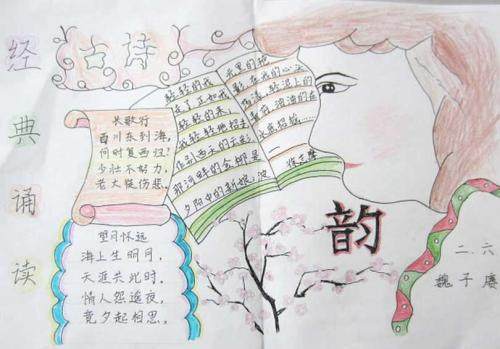 经典诵读
古诗
长歌行
百川东到海,
何时复西归?
少壮不努力,
老大徒伤悲。
轻轻的我
走了正如我
轻轻的来,
我轻轻地招手
作别西天的云彩
那河畔的金柳是
夕阳中的新娘,波
光里的艳
影,在我的心头
荡漾,软泥上的
青荇,油油的在
水底招摇……
—徐志摩
望月怀远
海上生明月,
天涯共此时,
情人怨遥夜,
竟夕起相思,
韵
二.六
魏子